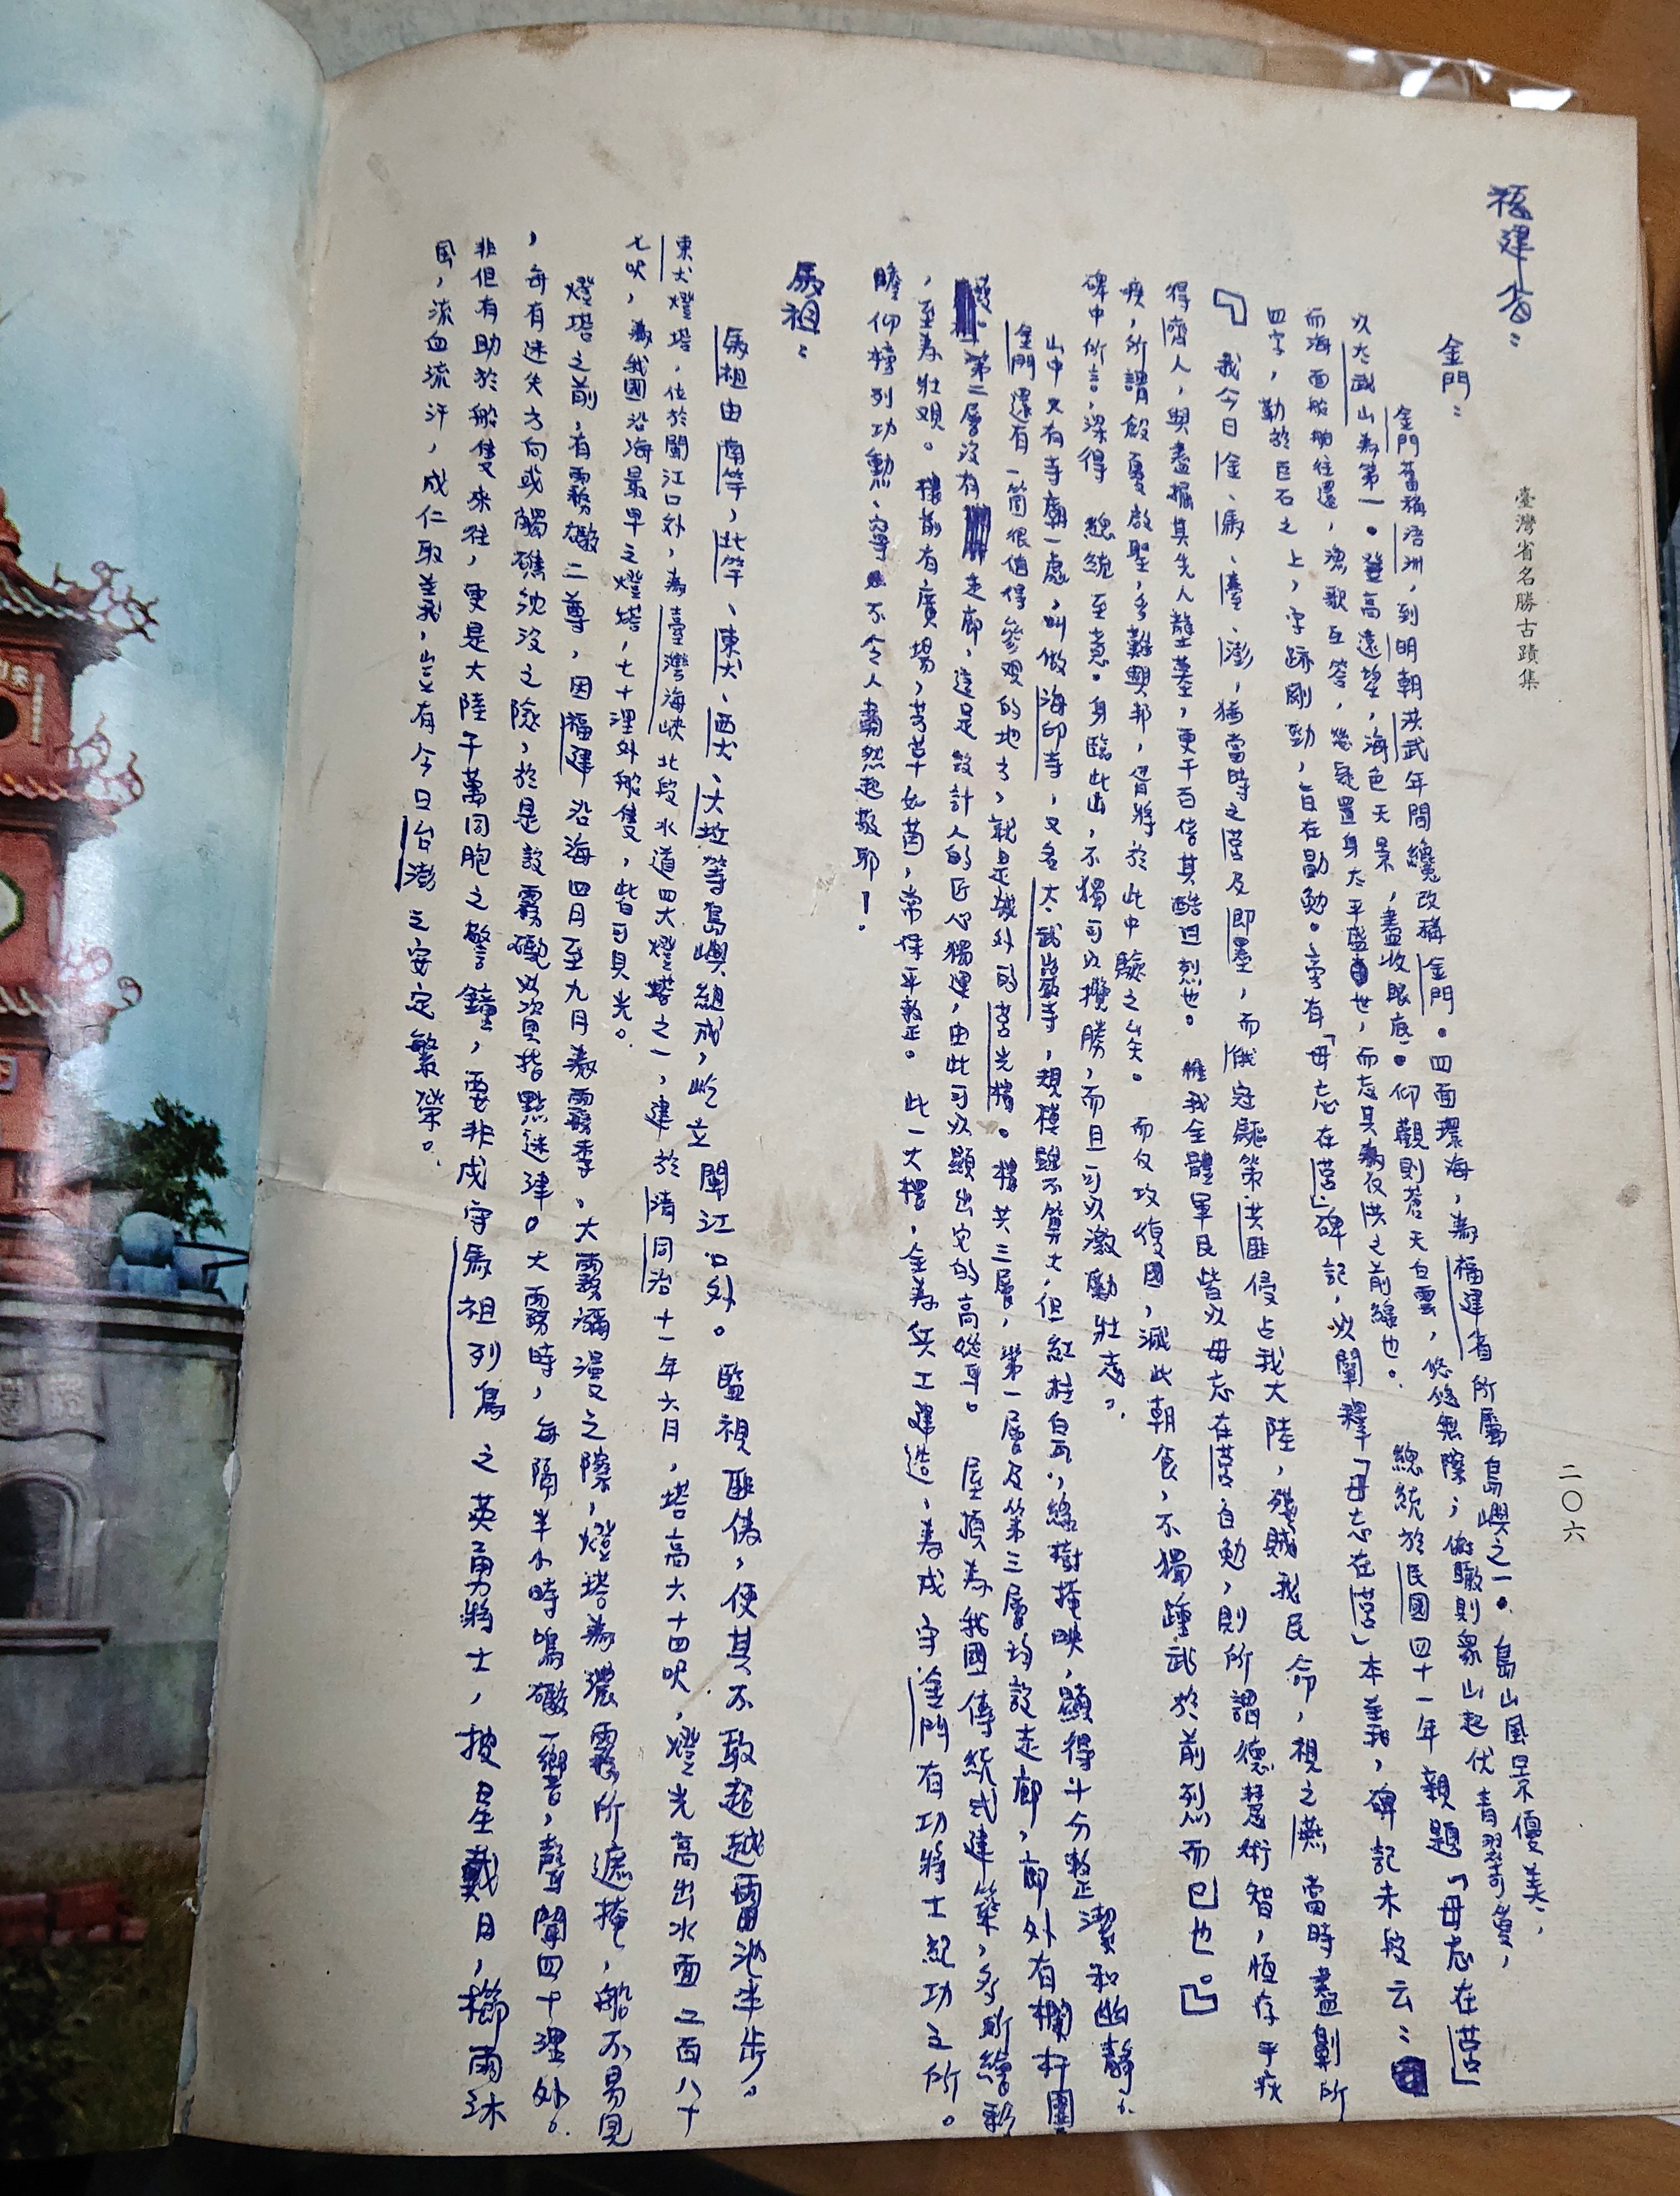 臺灣省名勝古蹟集
二〇六
福建省：
金門：
金門舊稱浯洲，到明朝洪武年間纔改稱金門。四面環海，為福建省所屬島嶼之一。島山風景優美，
以太武山為第一。登高遠望，海色天景，盡收眼底。仰觀則蒼天白雲，悠悠無際；俯瞰則衆山起伏青翠籠蓊，
而海面船舶往還，漁歌互答，幾疑置身太平盛世，而忘其為反洪之前線也。 總統於民國四十一年親題「毋忘在莒」
四字，勒於巨石之上，字跡剛勁，旨在勖勉。旁有「毋忘在莒」碑記，以闡釋「毋忘在莒」本義，碑記末段云：
「我今日金、馬、臺、澎，猶當時之莒及即墨，而俄寇驅策洪匪侵占我大陸，殘賊我民命，視之燕當時盡劓所
得齊人，與盡掘其先人壟墓，更千百倍其酷且烈也。惟我全體軍民皆以毋忘在莒自勉，則所謂德慧術智，恒存乎疢
疾，所謂殷憂啟聖，多難興邦，胥將於此中驗之矣。而反攻復國，滅此朝食，不獨踵武於前烈而已也。」
碑中所言，深得 總統至意。身臨此山，不獨可以攬勝，而且可以激勵壯志。
山中又有寺廟一處，叫做海印寺，又名太武巖寺，規模雖不算大，但紅柱白瓦，綠樹掩映，顯得十分整潔和幽靜。
金門還有一個很值得參观的地方，就是城外的莒光樓。樓共三層，第一層及第三層均設走廊，廊外有欄杆圍
繞。第二層沒有走廊，這是設計人的匠心獨運，由此可以顯出它的高聳。 屋頂為我國傳統式建築，多所繪彩
，至為壯观。樓前有廣場，芳草如茵，常保平整。此一大樓，全為兵工建造，為戍守金門有功將士紀功之所。
瞻仰榜列功勳，寧不令人肅然起敬耶！
馬祖：
馬祖由南竿，北竿、東犬、西犬、大坵等島嶼組成，屹立閩江口外。監視匪俄，使其不敢超越雷池半步。
東犬燈塔，位於閩江口外，為臺灣海峽北段水道四大燈塔之一，建於清同治十一年六月，塔高六十四呎，燈光高出水面二百八十
七呎，為我國沿海最早之燈塔，七十浬外船隻，皆可見光。
燈塔之前，有霧礮二尊，因福建沿海四月至九月為霧季，大霧瀰漫之際，燈塔為濃霧所遮掩，船不易見
，每有迷失方向或觸礁沈沒之險，於是設霧礮以資指點迷津。大霧時，每隔半小時鳴礮一響，聲聞四十浬外。
非但有助於船隻來往，更是大陸千萬同胞之警鐘，要非戍守馬祖列島之英勇將士，披星戴月，櫛雨沐
風，流血流汗，成仁取義，豈有今日台澎之安定繁榮。